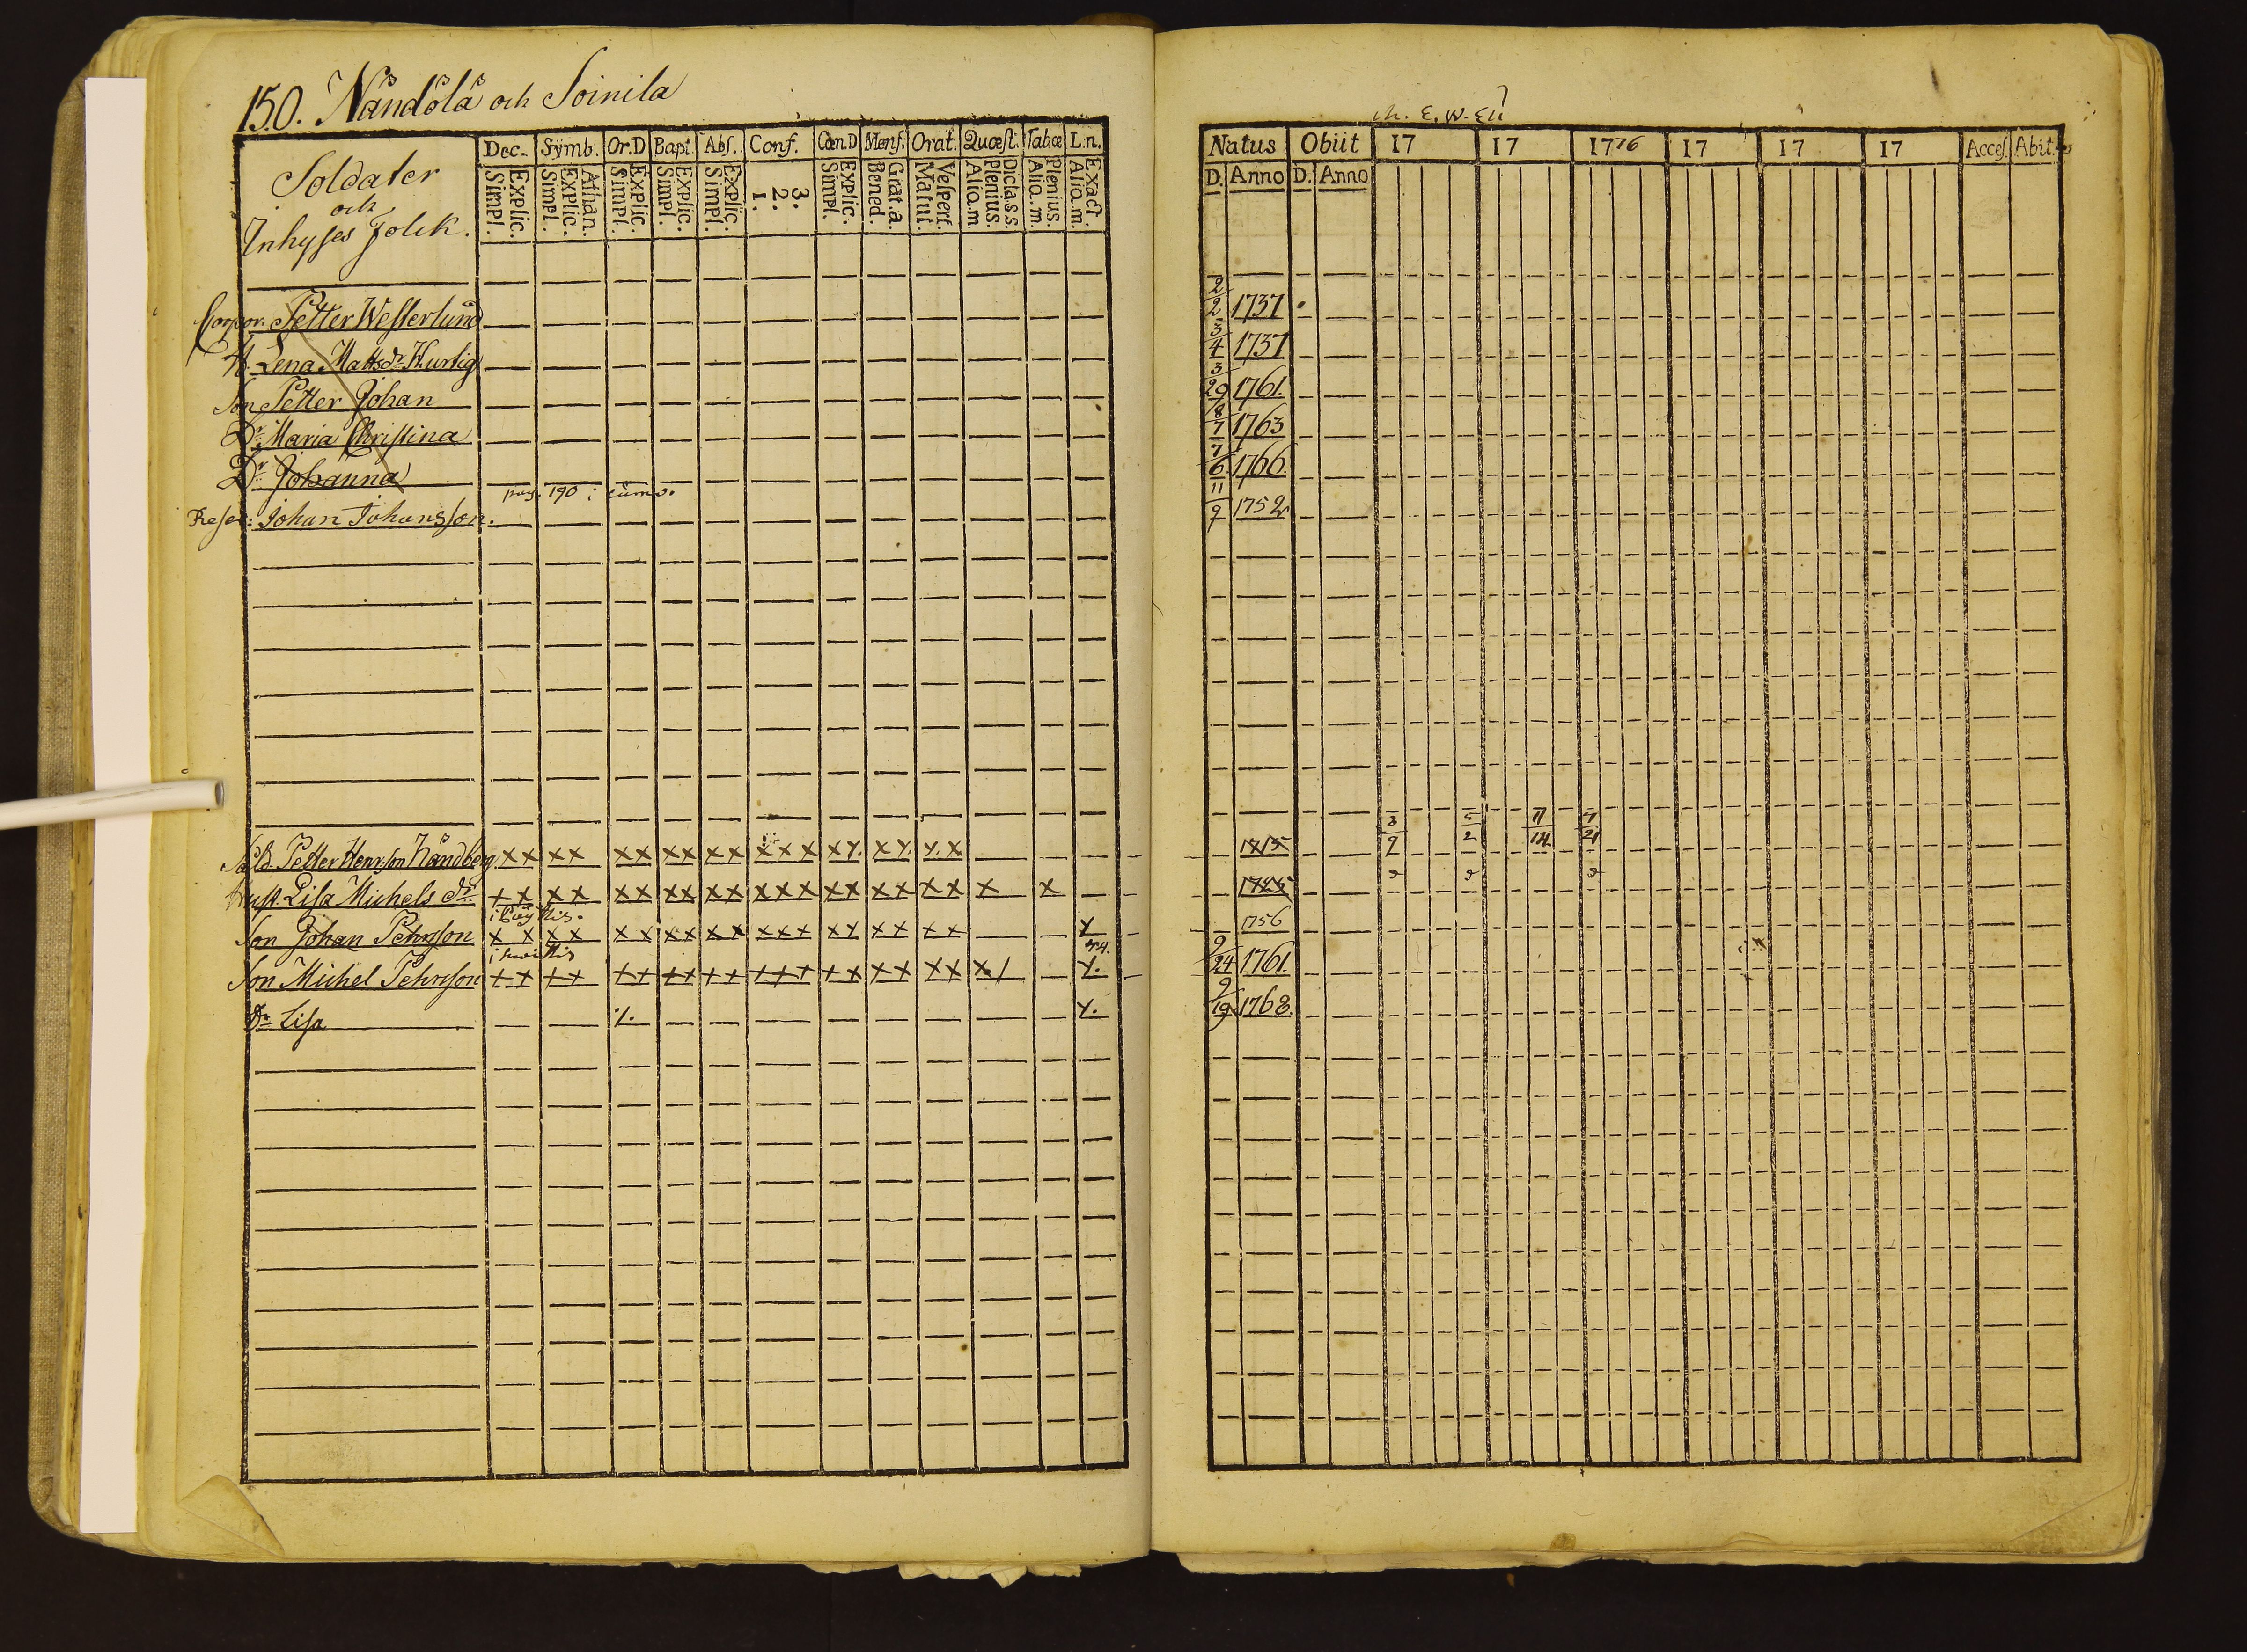 150. Nändölä och Soinila
Soldater
och
Inhyses Folck.
Dec. Symb. Or.D Bapt. Abs. Conf. Cœn.D Mens. Orat. Quæst. Tabœ L.n.
Simpl. Explic. Simpl. Explic. Athan. Simpl. Explic. Simpl. Explic. Simpl. Explic. 1. 2. 3. Simpl. Explic. Bened. Grat.a. Matut. Vespert. Aliq.m Plenius. Dictas s. Aliq.m Plenius. Aliq.m Exact.
Corpor. Petter Westerlund
H. Lena Mattsdr Hurtig
Son Petter Johan
Dr. Maria Christina
Dr. Johanna
pag. 190
Johan Johansson.
Sold. Petter Henrsson Nändberg x x x x x x x x x x x x x x x x x x x
Hust. Lisa Michels dr. x x x x x x x x x x x x x x x x x x x x x
Son Johan Pehrsson x x x x x x x x x x x x x x x x x x x x
Son Michel Pehrsson x x x x x x x x x x x x x x x x x x x x
Dr Lisa
Natus Obiit 17 17 1776 17 17 17 Acces. Abit.
D. Anno D. Anno
2/2 1737
3/4 1737
3/29 1761.
8/7 1763
7/6 1766.
11/9 1752
3/9 5/2 11/14 7/21
1715
1725
1756
9/24 1761.
9/19 1768.